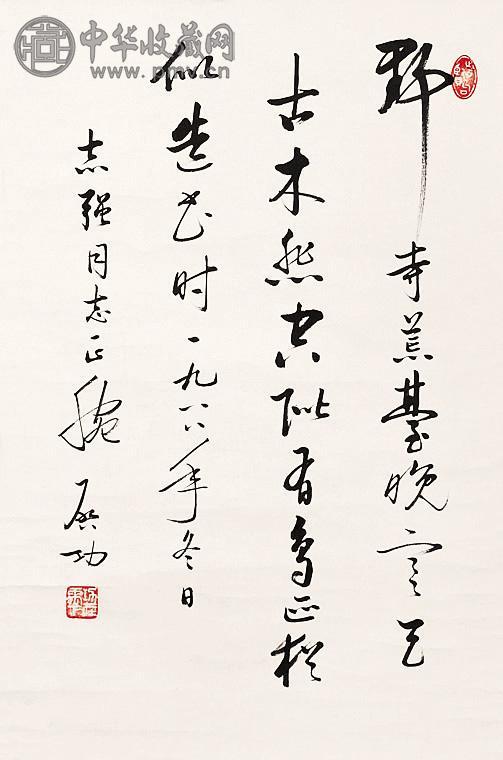 中华收藏网
野寺荒臺晚寒天
古木悲空階有鳥迹猶
似造書时一九八八年冬日
志强同志正腕 启功